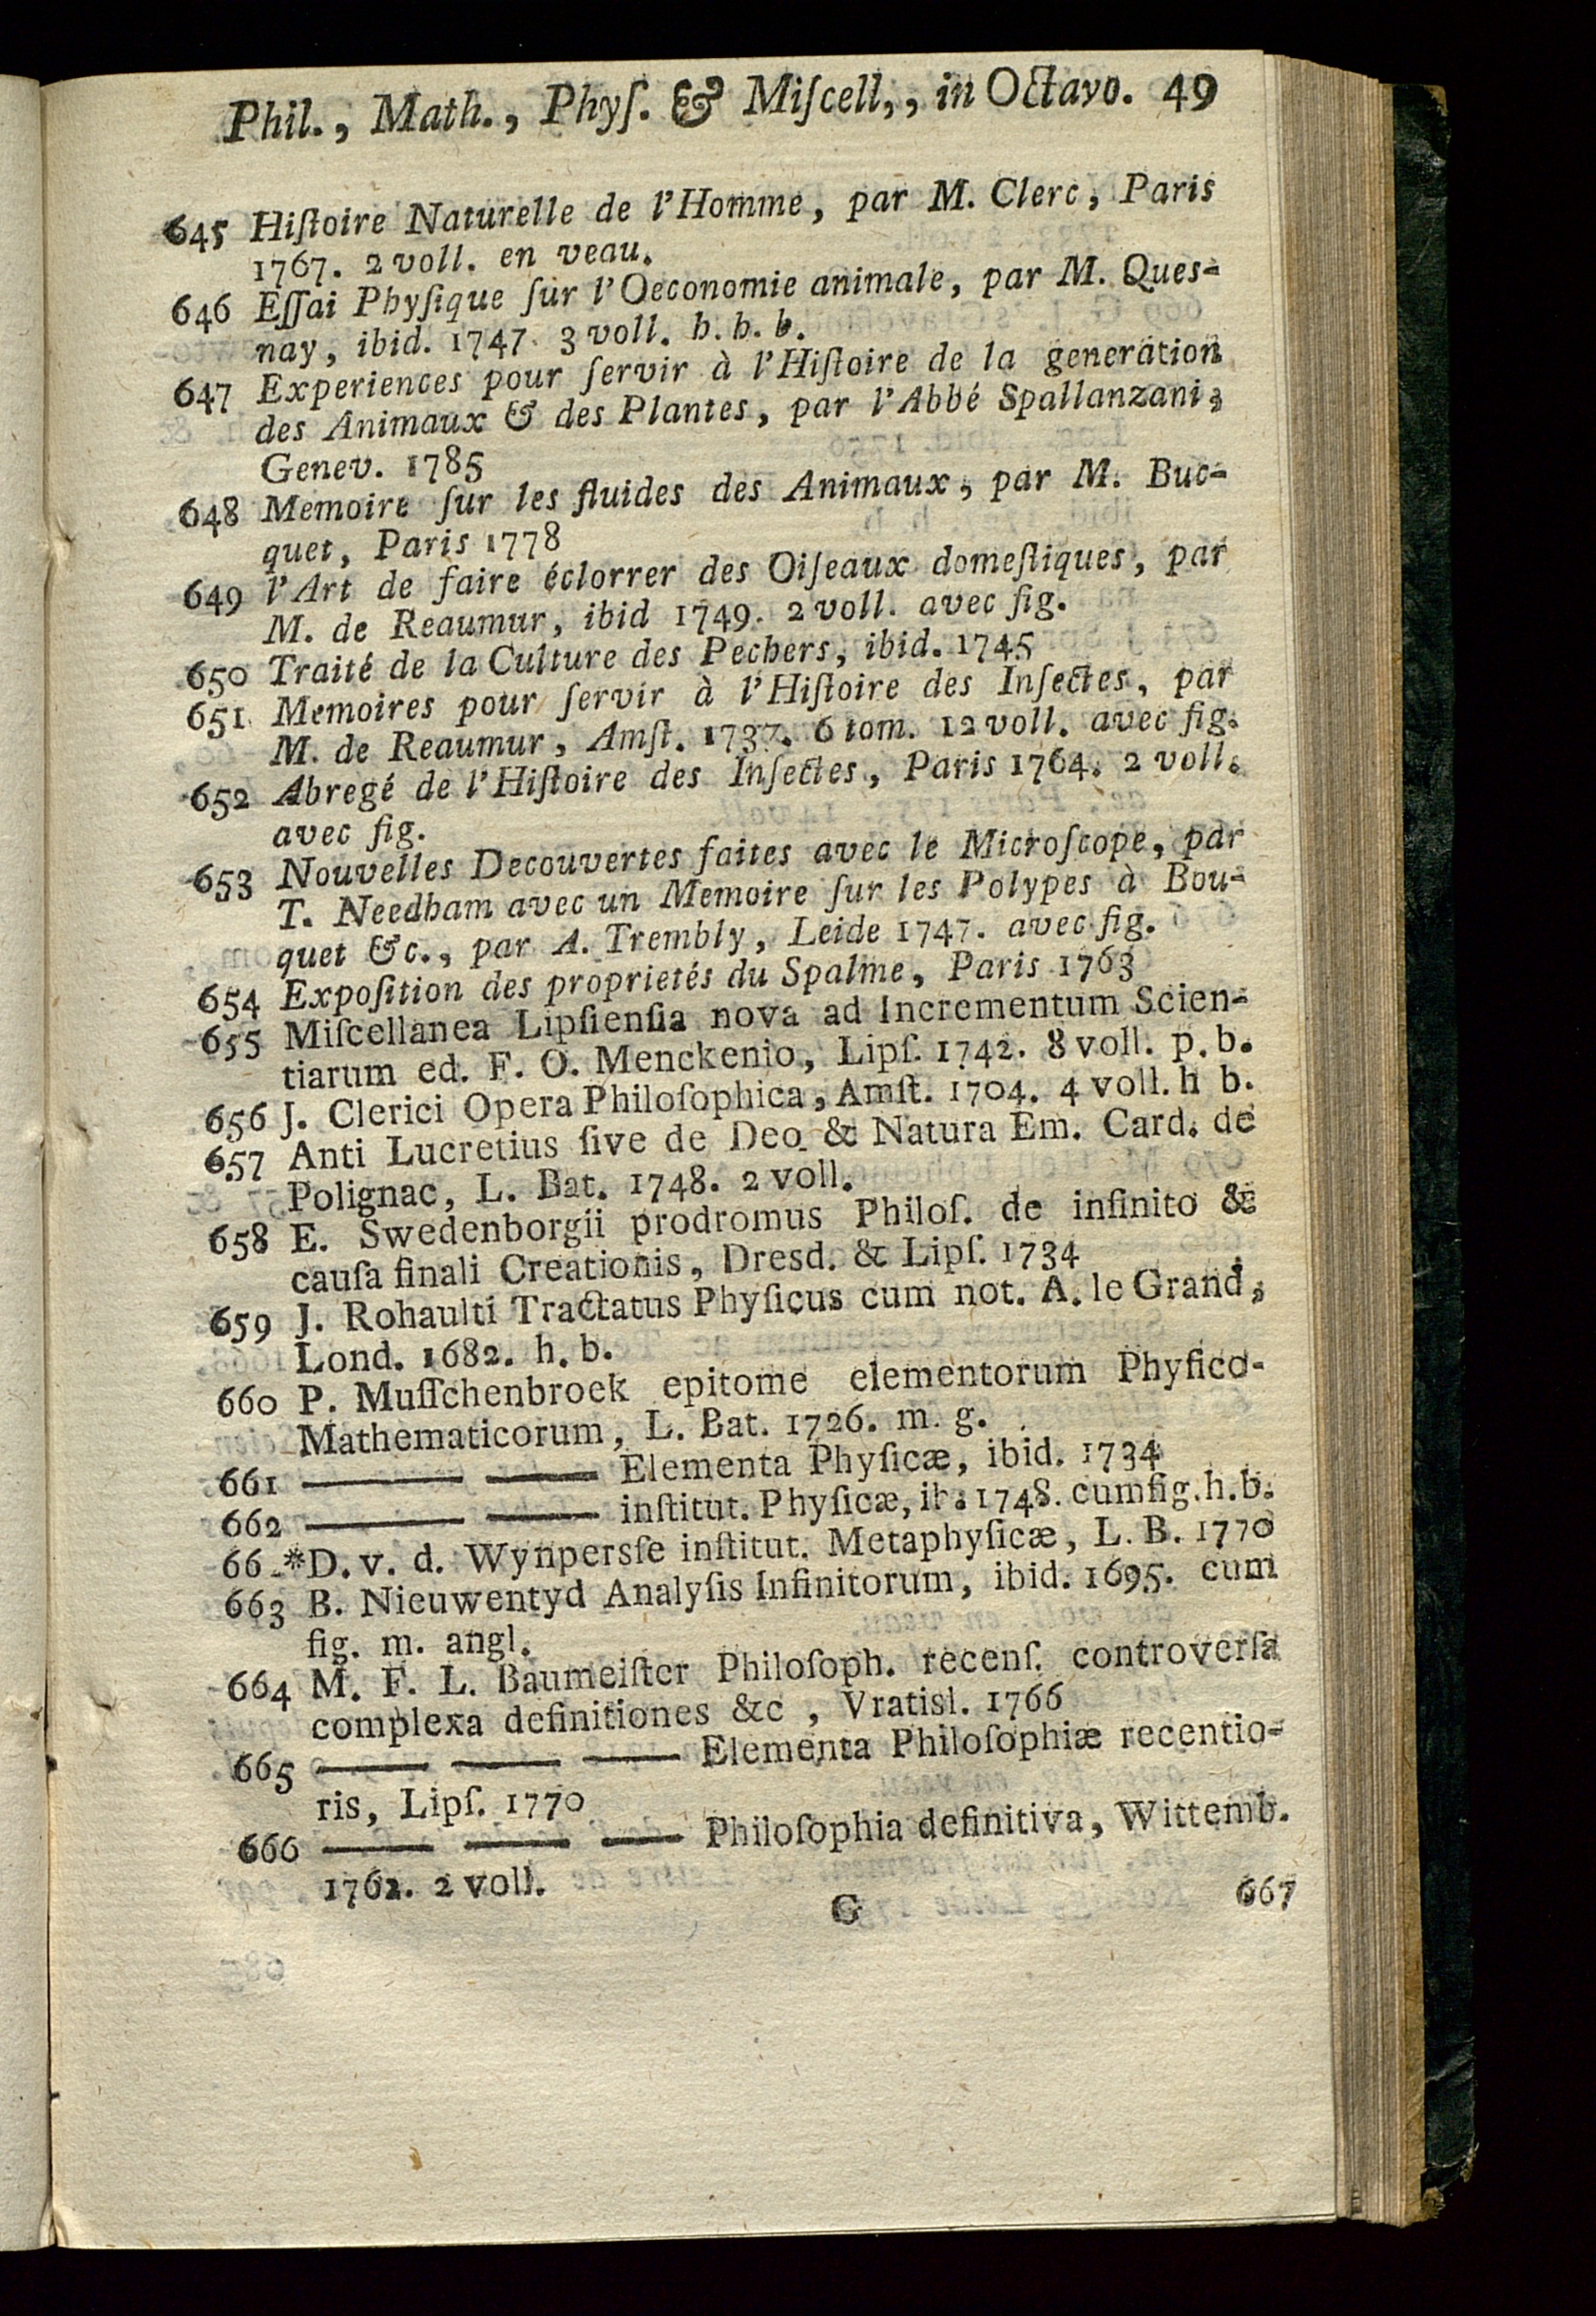 Phil., Math., Phyſ. & Miſcell,, in Octavo. 49
645 Hiſtoire Naturelle de l'Homme, par M. Clerc, Paris
1767. 2 voll. en veau.
646 Eſſai Phyſique ſur l'Oeconomie animale, par M. Ques-
nay, ibid. 1747. 3 voll. h. h. b.
647 Experiences pour ſervir à l'Hiſtoire de la generation
des Animaux & des Plantes, par l'Abbé Spallanzani,
Genev. 1785
648 Memoire ſur les fluides des Animaux, par M. Buc-
quet, Paris 1778
649 l'Art de faire éclorrer des Oiſeaux domeſtiques, par
M. de Reaumur, ibid 1749. 2 voll. avec fig.
650 Traité de la Culture des Pechers, ibid. 1745
651 Memoires pour ſervir à l'Hiſtoire des Inſectes, par
M. de Reaumur, Amſt. 1737. 6 tom. 12 voll. avec fig.
652 Abregé de l'Hiſtoire des Inſectes, Paris 1764. 2 voll.
avec fig.
653 Nouvelles Decouvertes faites avec le Microſcope, par
T. Needham avec un Memoire ſur les Polypes à Bou-
quet &c., par A. Trembly, Leide 1747. avec fig.
654 Expoſition des proprietés du Spalme, Paris 1763
655 Miſcellanea Lipſienſia nova ad Incrementum Scien-
tiarum ed. F. O. Menckenio, Lipſ. 1742. 8 voll. p. b.
656 J. Clerici Opera Philoſophica, Amſt. 1704. 4 voll. h b.
657 Anti Lucretius ſive de Deo & Natura Em. Card. de
Polignac, L. Bat. 1748. 2 voll.
658 E. Swedenborgii prodromus Philoſ. de infinito &
cauſa finali Creationis, Dresd. & Lipſ. 1734
659 J. Rohaulti Tractatus Phyſicus cum not. A. le Grand,
Lond. 1682. h. b.
660 P. Muſſchenbroek epitome elementorum Phyſico-
Mathematicorum, L. Bat. 1726. m. g.
661 —— —— Elementa Phyſicæ, ibid. 1734
662 —— —— inſtitut. Phyſicæ, ib. 1748. cumfig. h. b.
66.*D. v. d. Wynpersſe inſtitut. Metaphyſicæ, L. B. 1770
663 B. Nieuwentyd Analyſis Infinitorum, ibid. 1695. cum
fig. m. angl.
664 M. F. L. Baumeiſter Philoſoph. recenſ. controverſa
complexa definitiones &c , Vratisl. 1766
665 —— —— —— Elementa Philoſophiæ recentio-
ris, Lipſ. 1770
666 —— —— —— Philoſophia definitiva, Wittemb.
1762. 2 voll.
G 667